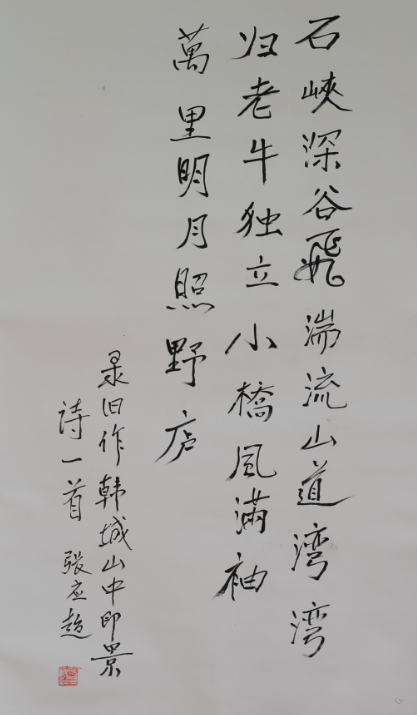 石峽深谷飛湍流山道湾湾
归老牛独立小橋风滿袖
萬里明月照野庐
录旧作韩城山中即景
诗一首 張应超